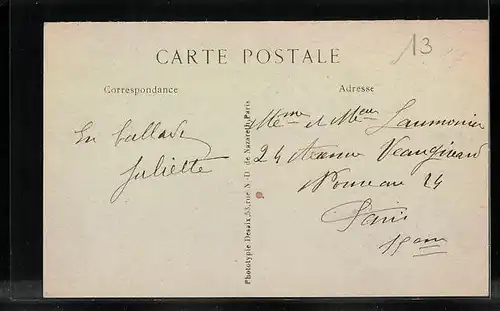 CARTE POSTALE
13
Correspondance
Adresse
En ballade
Juliette
Mme et Mr Laumonier
24 Avenue Vaugirard
Nouveau 24
Paris
15em
Phototypie Desaix, 53, rue N.-D. de Nazareth, Paris